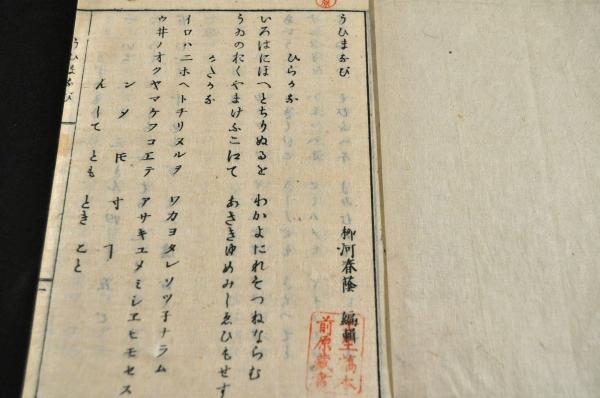 うひまなび
柳河春蔭 編輯
ひらがな
いろはにほへとちりぬるを わかよたれそつねならむ
うゐのおくやまけふこえて あさきゆめみしゑひもせす
かたかな
イロハニホヘトチリヌルヲ ワカヨタレソツ子ナラム
ウ井ノオクヤマケフコエテ アサキユメミシヱヒモセス
ん して とも とき こと
うひまなび
前原蔵書